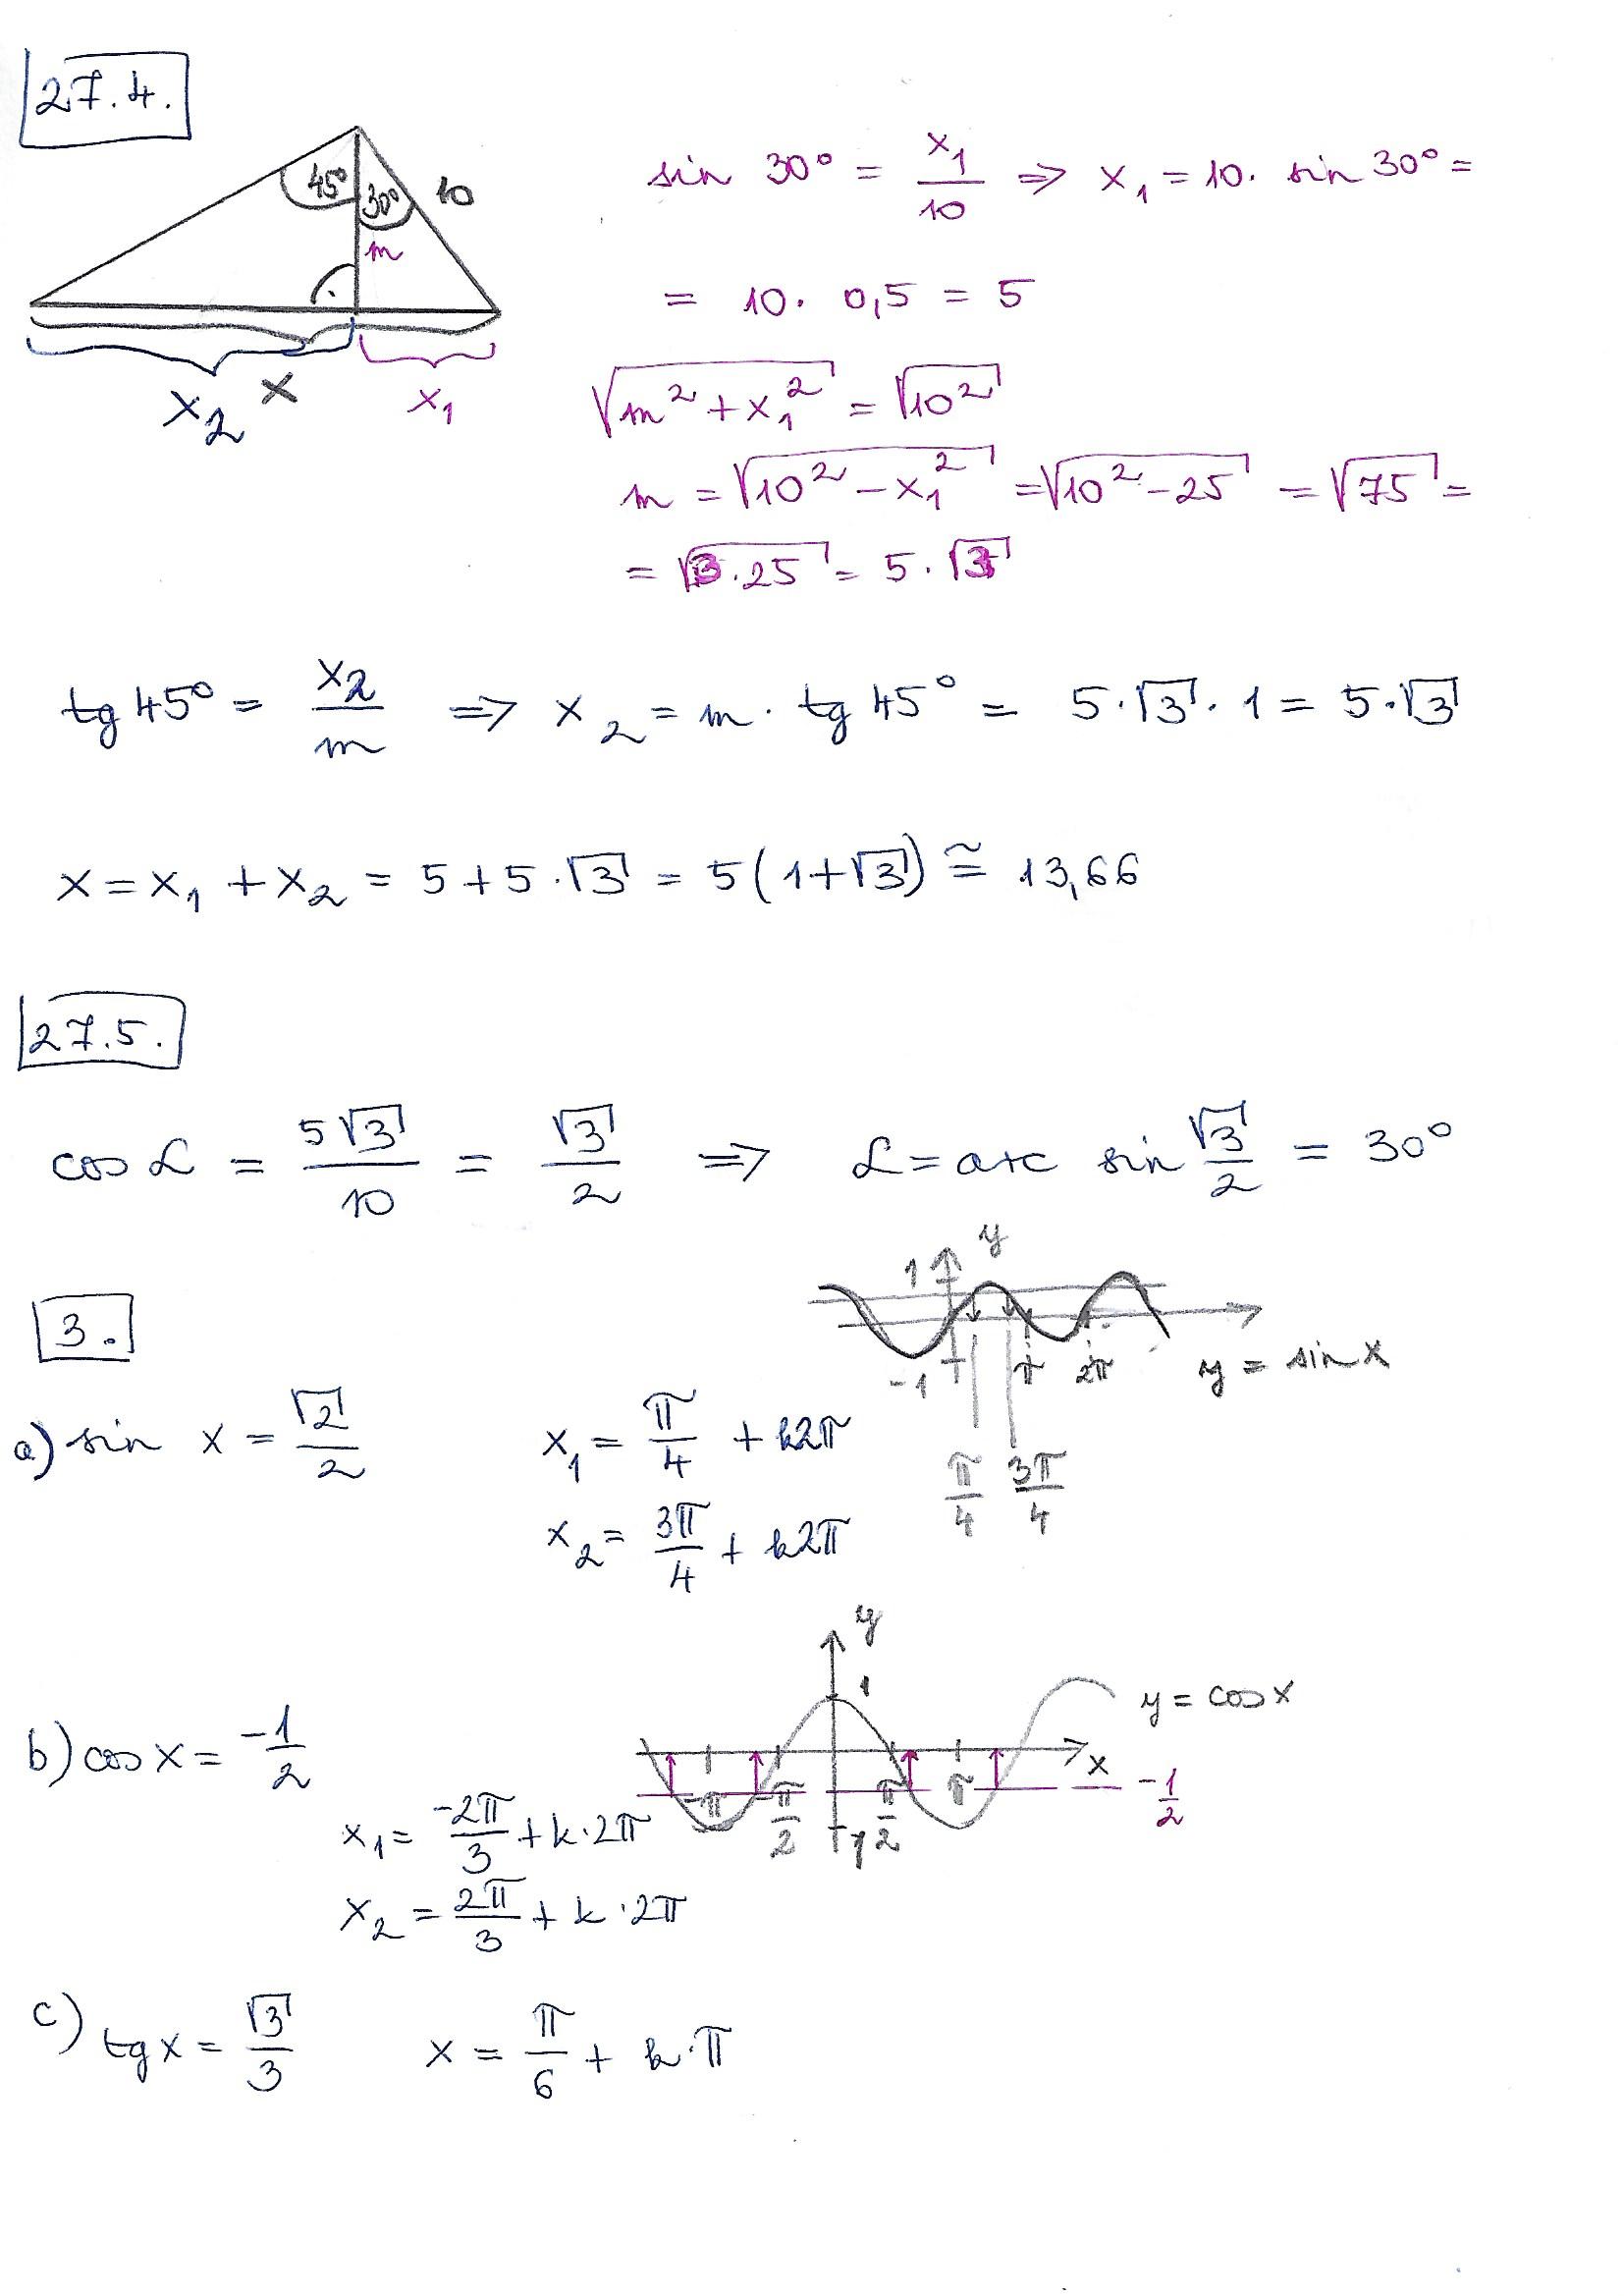 27.4.
45° 30° 10
m
x₂ x x₁
sin 30° = x₁/10 ⇒ x₁ = 10. sin 30° =
= 10. 0,5 = 5
√(m² + x₁²) = √(10²)
m = √(10² - x₁²) = √(10² - 25) = √75 =
= √(3.25) = 5.√3
tg 45° = x₂/m ⇒ x₂ = m . tg 45° = 5.√3 . 1 = 5.√3
x = x₁ + x₂ = 5 + 5.√3 = 5(1+√3) ≅ 13,66
27.5.
cos α = 5√3/10 = √3/2 ⇒ α = arc sin √3/2 = 30°
3.
y
1
-1 π 2π y = sin x
π/4 3π/4
a) sin x = √2/2 x₁ = π/4 + k2π
x₂ = 3π/4 + k2π
y
1 y = cos x
x
-π -π/2 π/2 π -1/2
-1
b) cos x = -1/2
x₁ = -2π/3 + k.2π
x₂ = 2π/3 + k.2π
c) tg x = √3/3 x = π/6 + k.π